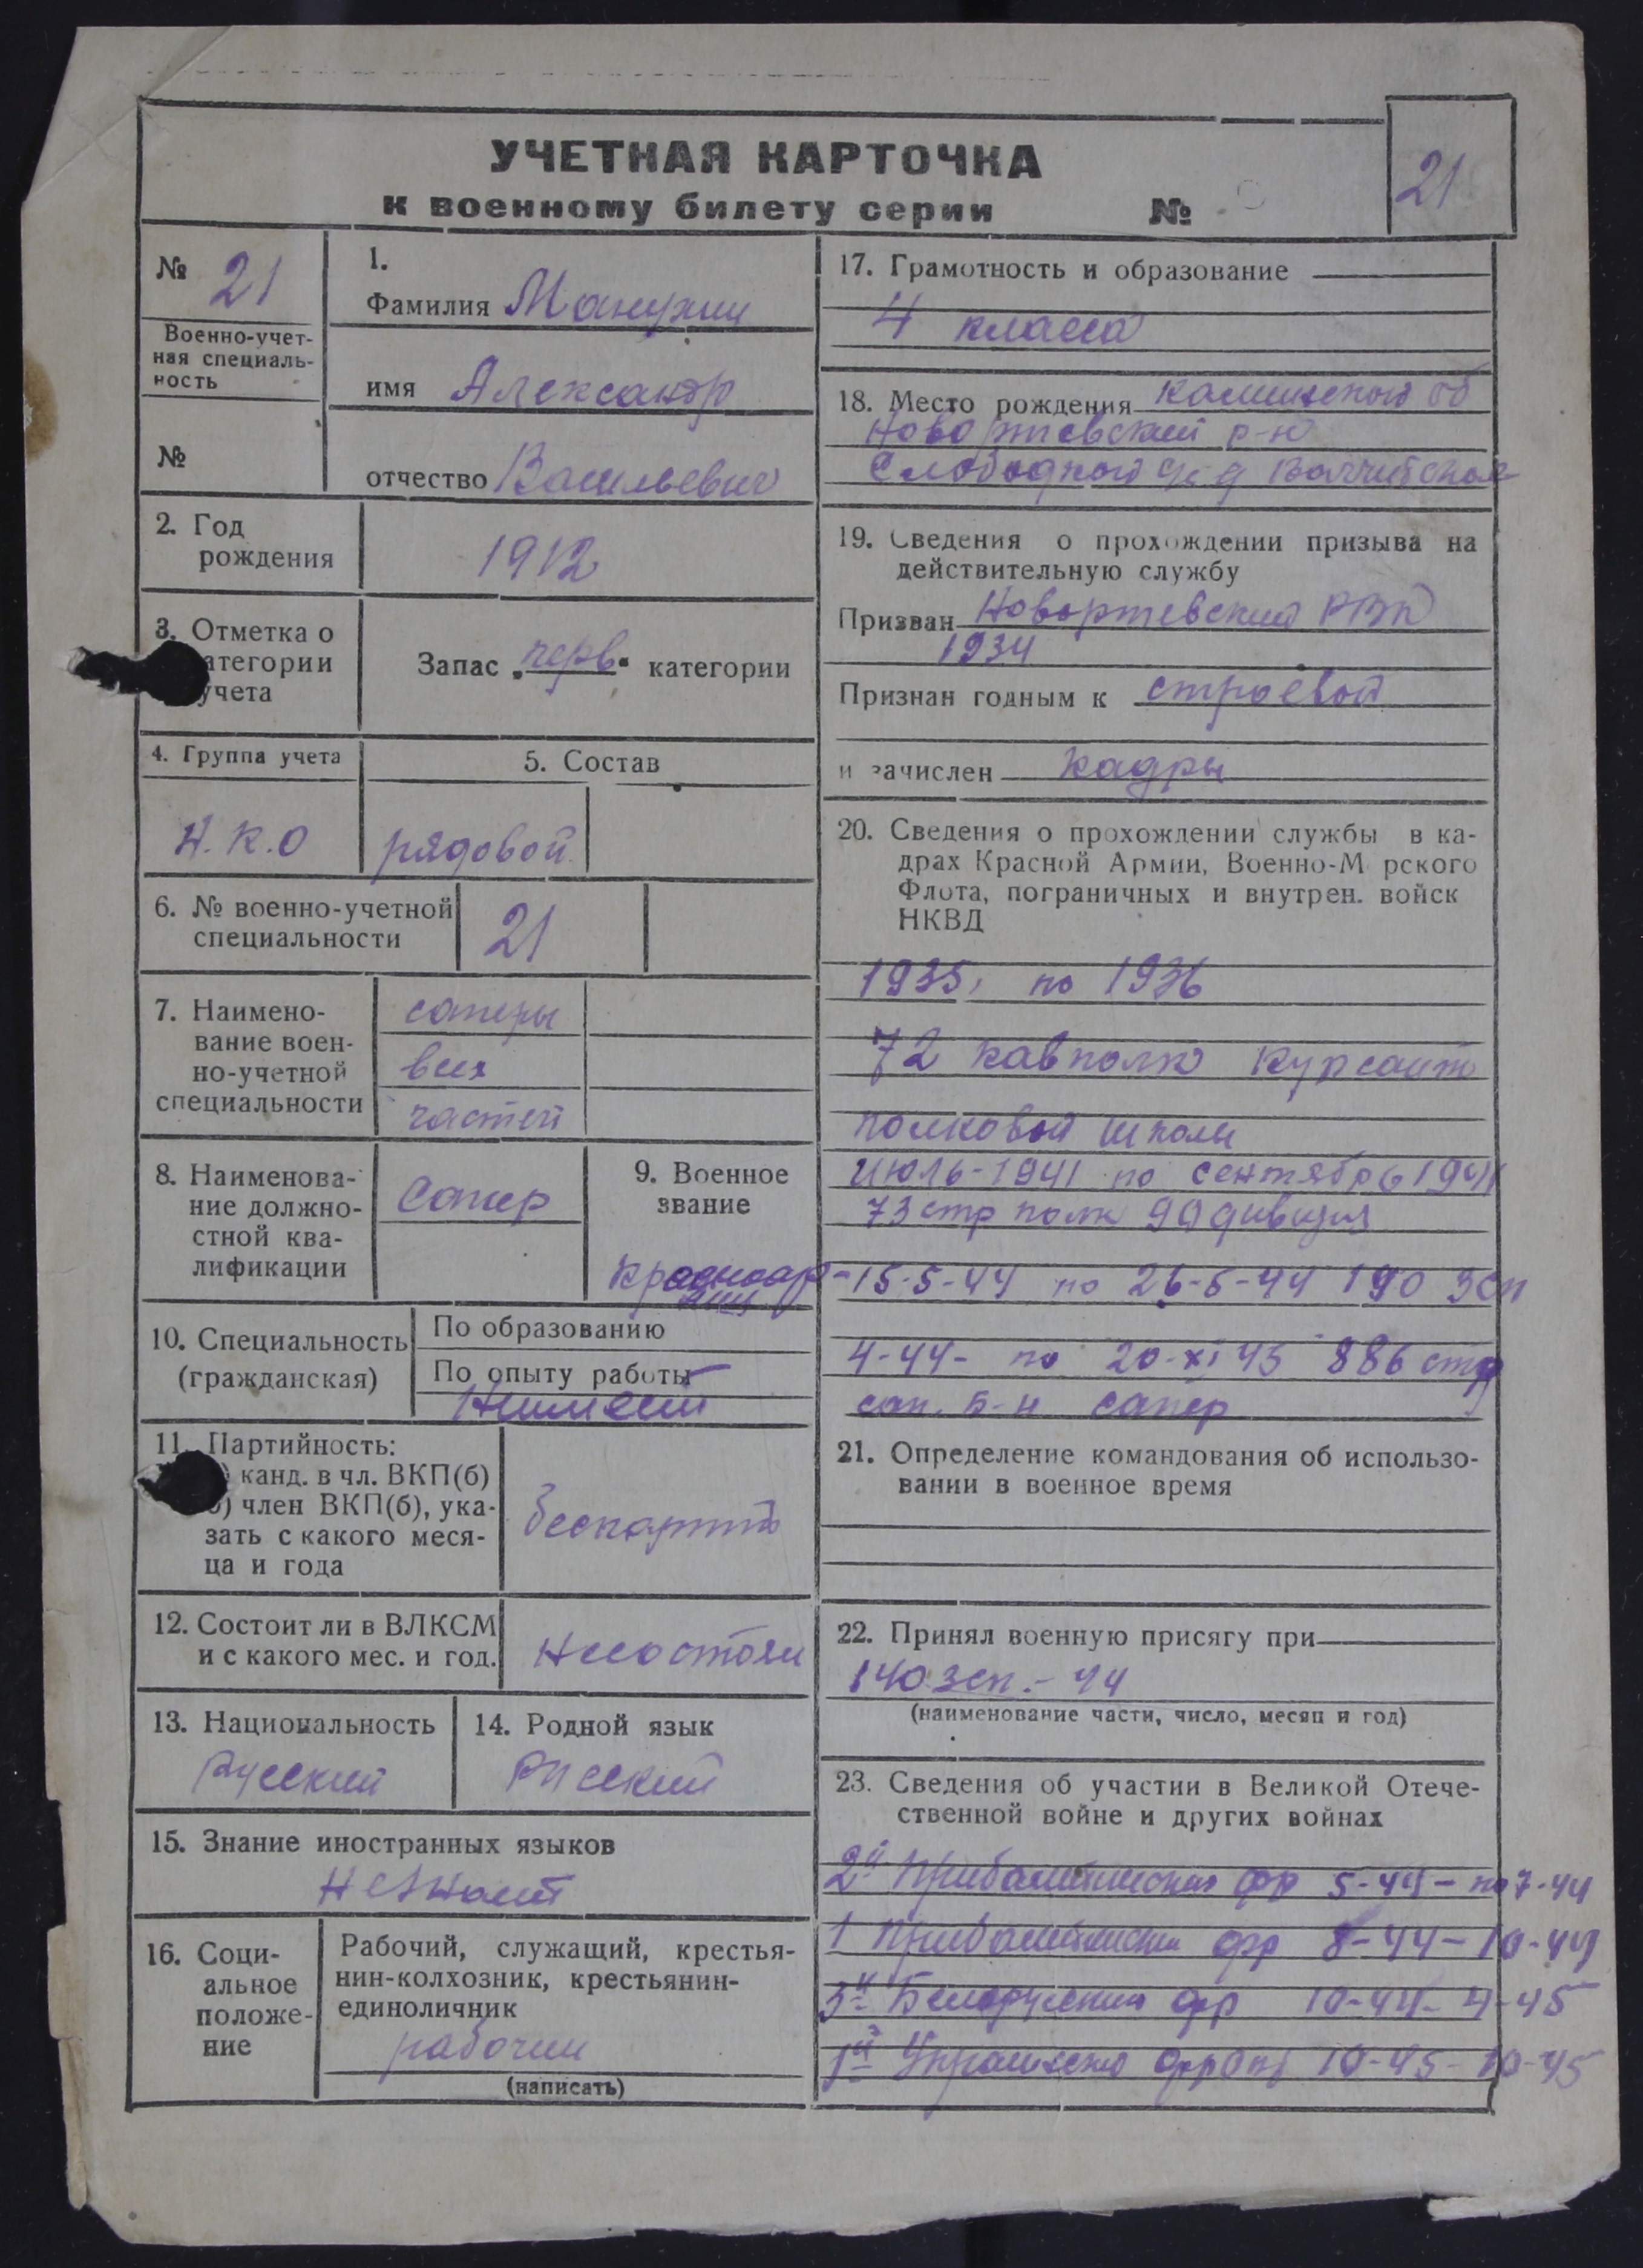 УЧЕТНАЯ КАРТОЧКА
к военному билету серии №
21
№ 21
Военно-учет-
ная специаль-
ность
№
1.
Фамилия Манухин
имя Александр
отчество Васильевич
2. Год
рождения
1912
3. Отметка о
атегории
учета
Запас „перв“ категории
4. Группа учета
Н.К.О
5. Состав
рядовой
6. № военно-учетной
специальности
21
7. Наимено-
вание воен-
но-учетной
специальности
саперы
всех
частей
8. Наименова-
ние должно-
стной ква-
лификации
Сапер
9. Военное
звание
Красноар-
меец
10. Специальность
(гражданская)
По образованию
По опыту работы
Неимеет
11. Партийность:
) канд. в чл. ВКП(б)
б) член ВКП(б), ука-
зать с какого меся-
ца и года
беспартт
12. Состоит ли в ВЛКСМ
и с какого мес. и год.
Несостоял
13. Национальность
Русский
14. Родной язык
Русский
15. Знание иностранных языков
Незнает
16. Соци-
альное
положе-
ние
Рабочий, служащий, крестья-
нин-колхозник, крестьянин-
единоличник
рабочий
(написать)
17. Грамотность и образование
4 класса
18. Место рождения Калининской об
Новоржевский р-н
Слободской
19. Сведения о прохождении призыва на
действительную службу
Призван Новоржевский РВК
1934
Признан годным к строевой
и зачислен Кадры
20. Сведения о прохождении службы в ка-
драх Красной Армии, Военно-М рского
Флота, пограничных и внутрен. войск
НКВД
1935, по 1936
72 кавполк Курсант
полковой школы
Июль-1941 по сентябрь 1941
73 стр полк 90 дивизия
15-5-44 по 26-5-44 190 Зсп
4-44- по 20-XI 45 886 стр
сап. Б-н сапер
21. Определение командования об использо-
вании в военное время
22. Принял военную присягу при
140 зсп.- 44
(наименование части, число, месяц и год)
23. Сведения об участии в Великой Отече-
ственной войне и других войнах
2й Прибалтийский фр 5-44- по 7-44
1 Прибалтийский фр 8-44- 10-44
3й Белорусский фр 10-44- 4-45
1й Украинский фронт 10-45- 10-45